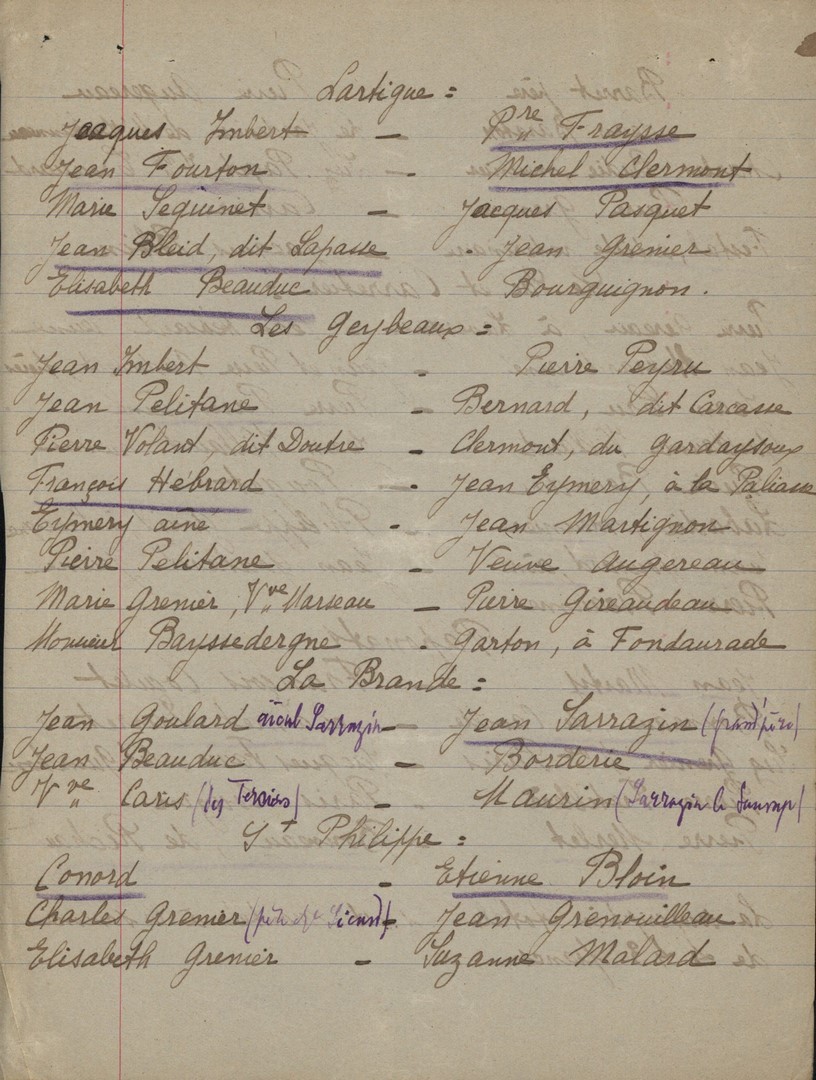 Lartigue =
Jacques Imbert - Pre Fraysse
Jean Fourton - Michel Clermont
Marie Seguinet - Jacques Pasquet
Jean Bleid, dit Lapasse - Jean Grenier
Elisabeth Beauduc Bourguignon.
Les Geybeaux =
Jean Imbert - Pierre Peyru
Jean Pelitane - Bernard, dit Carcasse
Pierre Volant, dit Doutre - Clermont, du Gardaysoux
François Hébrard - Jean Eymery, à la Paliasse
Eymery aîné - Jean Martignon
Pierre Pelitane - Veuve Augereau
Marie Grenier, Vve Marseau - Pierre Gireaudeau
Monsieur Bayssedergne - Garton, à Fondaurade
La Brande =
Jean Goulard aïeul Sarrazin - Jean Sarrazin (grand'père)
Jean Beauduc - Borderie
Vve Caris (des Terriers) - Maurin (Sarrazin le
St Philippe =
Conord - Etienne Bloin
Charles Grenier (père - Jean Grenouilleau
Elisabeth Grenier - Suzanne Malard